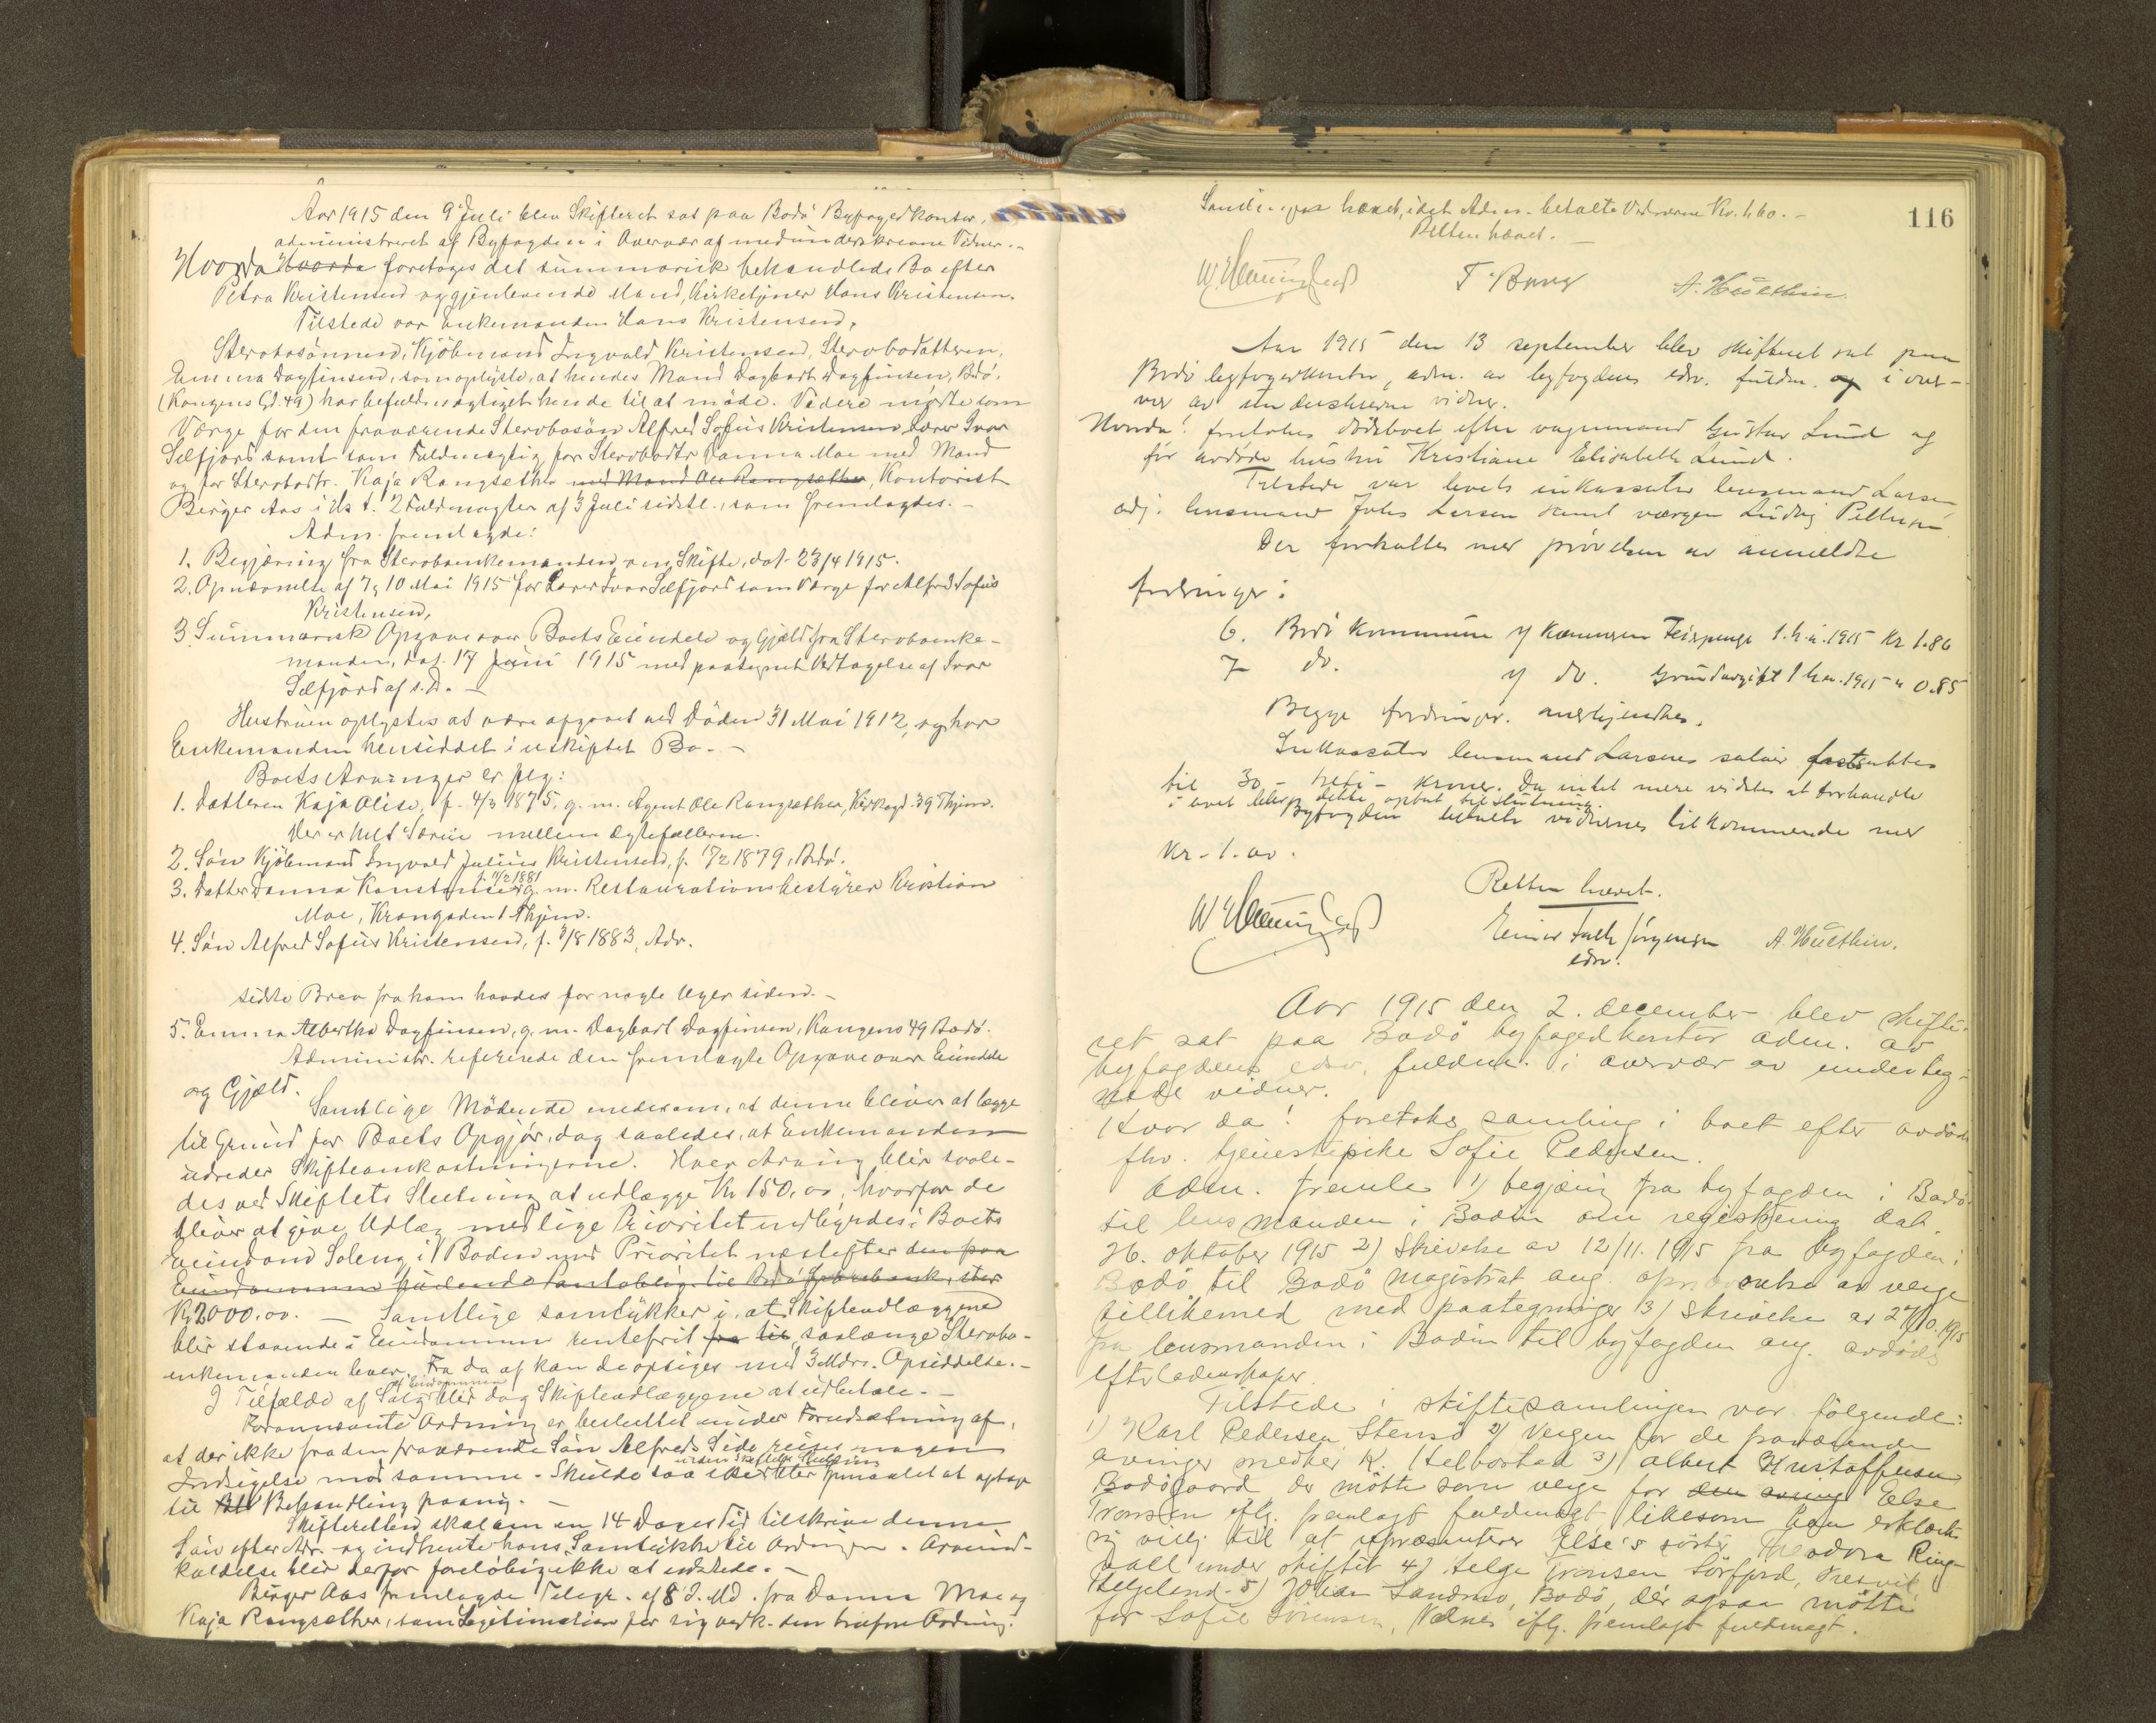 Aar 1915 den 9 Juli blev Skifteret sat paa Bodø Byfogedkontor,
administreret af Byfogden i Overvær af medunderskrevne Vidner.-
Hvorda Hvorda foretoges det summarisk behandlede Bo efter
Petra Kristensen og gjenlevende Mand, Kirketjener Hans Kristensen.
Tilstede var Enkemanden Hans Kristensen,
Stervbosønnen, Kjøbmand Ingvald Kristensen, Stervbodatteren,
Emma Dagfinsen, som oplyste, at hendes Mand Dagbart Dagfinsen, Bdø.
(Kongens Gd. 49) har befuldmægtiget hende til at møde. Videre mødte som
Værge for den fraværende Stervbosøn Alfred Sofus Kristensen Lærer Ivar
Sælfjord samt som Fuldmægtig for Stervbodtr Danna Moe med Mand
og for Stervbodtr. Kaja Rangsether med Mand Ole Rangsæther, Kontorist
Berger Aas i Hs t. 2 Fuldmagter af 3 Juli sidstl., som fremlagdes.-
Adm. fremlagde:
1. Begjæring fra Stervboenkemanden om Skifte, dat. 23/4 1915.
2. Opnævnelse af 7, 10 Mai 1915 for Lærer Ivar Sælfjord som Værge for Alfred Sofus
Kristensen,
3. Summarisk Opgave over Boets Eiendele og Gjæld fra Stervboenke-
manden, dat. 17 Juni 1915 med paategnet Vedtagelse af Ivar
Sælfjord af s.D.-
Hustruen oplystes at være afgaaet ved Døden 31 Mai 1912, og har
Enkemanden hensiddet i uskiftet Bo.-
Boets Arvinger er flg:
1. Datteren Kaja Olise, f. 4/3 1875, g.m. Agent Ole Rangsæther, Kirkegd. 39 Thjem.
Der er helt Særeie mellem Ægtefællerne.
2. Søn Kjøbmand Ingvald Julius Kristensen, f. 17/2 1879, Bdø.
3. Datter Danna Konstanse f. 11/2 1881 g.m. Restaurationsbestyrer Kristian
Moe, Krongaden 1 Thjem.
4. Søn Alfred Sofus Kristensen, f. 3/8 1883, Adr.
sidste Brev fra ham havdes for nogle Uger siden.-
5. Emma Albertha Dagfinsen, g.m. Dagbart Dagfinsen, Kongens 49 Bodø.
Administr. refererede den fremlagte Opgave over Eiendele
og Gjæld.
Samtlige Mødende enedes om, at denne bliver at lægge
til Grund for Boets Opgjør, dog saaledes, at Enkemanden
udreder Skifteomkostningerne. Hver Arving blir saale-
des ved Skiftets Slutning at udlægge Kr 150,00, hvorfor de
bliver at give Udlæg med lige Prioritet indbyrdes i Boets
Eiendom Soleng i Bodin med Prioritet næstefter den paa
Eiendommen hvilende Pantoblig. til Bodø Sparebank, stor
Kr 2000.00.- Samtlige samtykker i, at Skifteudlæggene
blir staaende i Eiendommen rentefrit fra til, saalænge Stervbo-
enkemanden lever. Fra da af kan de opsiges med 3 Mdrs. Opsiddelse.-
I Tilfælde af Salg af Eiendommen blir dog Skifteudlæggene at udbetale.-
Forannævnte Ordning er besluttet under Forudsætning af,
at der ikke fra den fraværende Søn Alfreds Side reises nogen
Indsigelse mod samme. Skulde saa ske inden Skiftets Slutning blir Spørsmaalet at optage
til Beh Behandling paany.-
Skifteretten skal om en 14 Dages Tid tilskrive denne
Søn efter Adr. og indhente hans Samtykke til Ordningen. Arveind-
kaldelse blir derfor foreløbig ikke at udstede.-
Berger Aas fremlagde Telegr. af 8 d. Md. fra Danna Moe og
Kaja Rangsæther, som Legitimation for sig vedk. den trufne Ordning.
116
Samlingen hævet, idet Adm. betalte Vidnerne Kr. 1,60.-
Retten hævet.-
T Berg
A. Hüsthin.
Aar 1915 den 13 september blev skifteret sat paa
Bodø byfogedkontor, adm. av byfogdens edsv. fuldm. og i over-
vær av underskrevne vidner.
Hvorda! foretokes dødsboet efter vognmand Gustav Lund og
før avdøde hustru Kristiane Elisabeth Lund.
Tilstede var boets inkassator lensmand Larsen
adj. lensmand Johs Larsen samt værgen Ludvig Pettersen
Der forholdtes med prøvelsen av anmeldte
fordringer:
6. Bodø kommune v/ kæmneren Feiepenge 1. h.a. 1915 kr 1.86
7 do. v/ do. Grundavgift 1 h.a. 1915 " 0.85
Begge fordringer anerkjendtes.
Inkassator lensmand Larsens salær fastsattes
til 30 - treti - kroner. Da intet mere vidstes at forhandle
i boet blev dette optat til slutning.
Byfogden betalte vidnernes tilkommende med
kr. 1.00.
Retten hævet.
Einar Falk Jørgensen
edsv.
A. Hüsthin.
Aar 1915 den 2. december blev skifte-
ret sat paa Bodø byfogedkontor adm. av
byfogdens edsv. fuldm. i overvær av underteg-
nede vidner.
Hvor da! foretokes samling i boet efter avdøde
fhv. tjenestepike Sofie Pedersen.
Adm. fremla 1) begjæring fra byfogden i Bodø
til lensmanden i Bodin om registrering dat.
26. oktober 1915 2) Skrivelse av 12/11. 1915 fra byfogden i
Bodø til Bodø Magistrat ang. opnævnelse av verge
tillikemed med paategninger 3) Skrivelse av 27/10. 1915
fra lensmanden i Bodin til byfogden ang. avdødes
efterladenskaper.
Tilstede i skiftesamlingen var følgende:
1) Karl Pedersen Stensø 2) Vergen for de fraværende
arvinger snedker K. Helbostad 3) Albert Kristoffersen
Bodøgaard, der møtte som verge for den arving Else
Tronsen iflg. fremlagt fuldmagt likesom han erklærte
sig villig til at repræsentere Else's søster Theodora Ring-
vall under skiftet 4) Helge Tronsen Sørfjord, Tresvik
Helgeland. 5) Johan Sandmo, Bodø, der ogsaa møtte
for Sofie Sørensen, Valnes iflg. fremlagt fuldmagt.